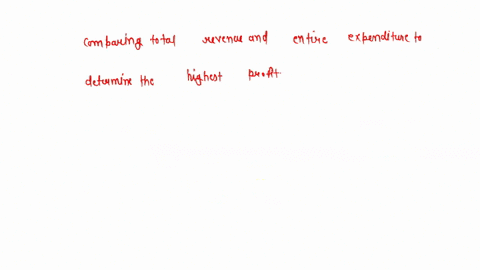 comparing total revenue and entire expenditure to
determine the highest profit